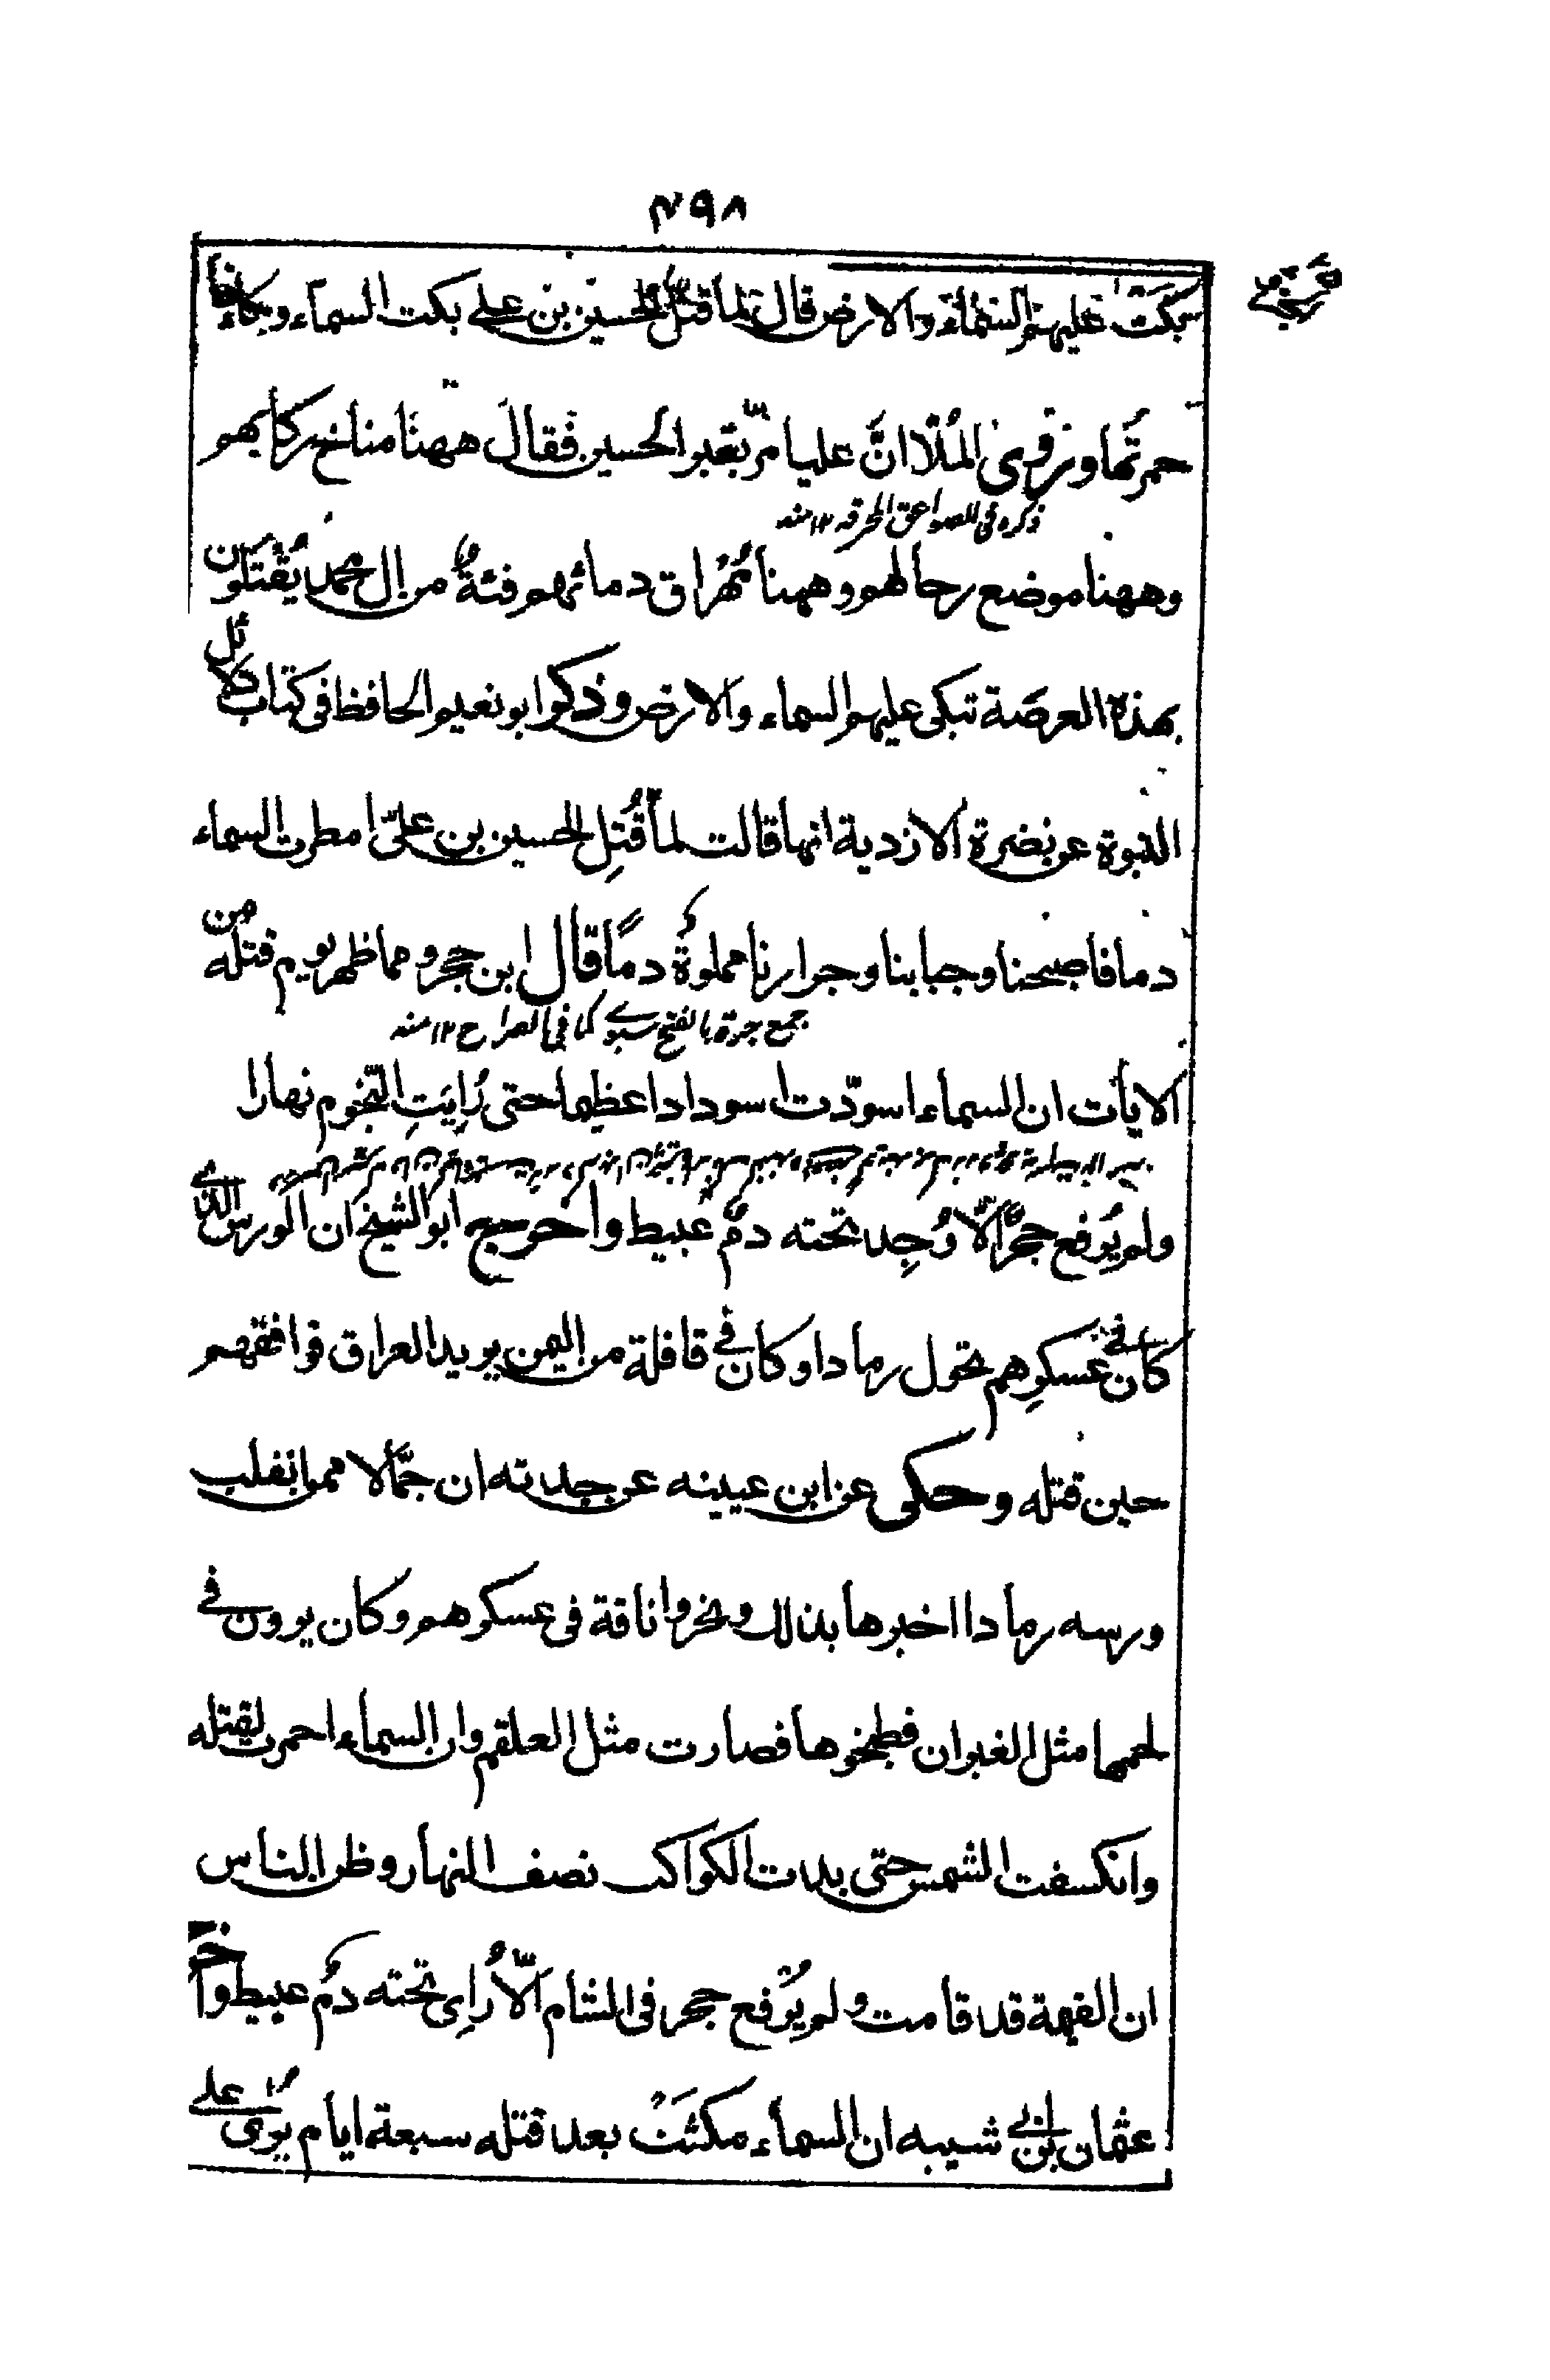 ۴۹۸
بكت عليهم السماء والارض قال لما قتل الحسين بن علي بكت السماء وبكاءها
حمرتها وروى الملّا انّ عليا مرّ بقبر الحسين فقال ههنا مناخ ركابهم
ذكره في الصواعق المحرقه ۱۲ منه
وههنا موضع رحالهم وههنا تُهْراق دمائهم فئةٌ من ال محمد يُقْتَلون
بهذه العرصة تبكى عليهم السماء والارض وذكر ابو نعيم الحافظ فى كتاب دلائل
النبوة عن نضرة الازدية انها قالت لما قُتِل الحسين بن علىّ امطرت السماء
دما فاصبحنا وجبابنا وجرارنا مملوةٌ دمًا قال ابن حجر ومما ظهر يوم قتله من
جمع جرة بالفتح سبوے كما في الصراح ۱۲ منه
الايات ان السماء اسودّت اسودادا عظيما حتى رُايَتِ النّجوم نهارا
ولم يُرفع حجرٌ الّا وُجِد تحته دمٌ عبيط واخرج ابو الشيخ ان الورس الذے
كان فے عسكرِهم تحول رمادا وكان في قافلة من اليمن يريد العراق فوافقهم
حين قتله وحكى عن ابن عيينه عن جدته ان جمّالا ممن انقلب
ورسه رمادا اخبرها بذلك ونحروا ناقة فى عسكرهم وكان يرون فے
لحمها مثل الغيران فطبخوها فصارت مثل العلقم وان السماء احمرت لقتله
وانكسفت الشمس حتى بدت الكواكب نصف النهار وظن الناس
ان القيمة قد قامت ولم يُرفع حجر فى الشام الّا رُاِى تحته دمٌ عبيط واخرج
عثمان بن ابي شيبه ان السماء مكثَتْ بعد قتله سبعة ايام يُرى على